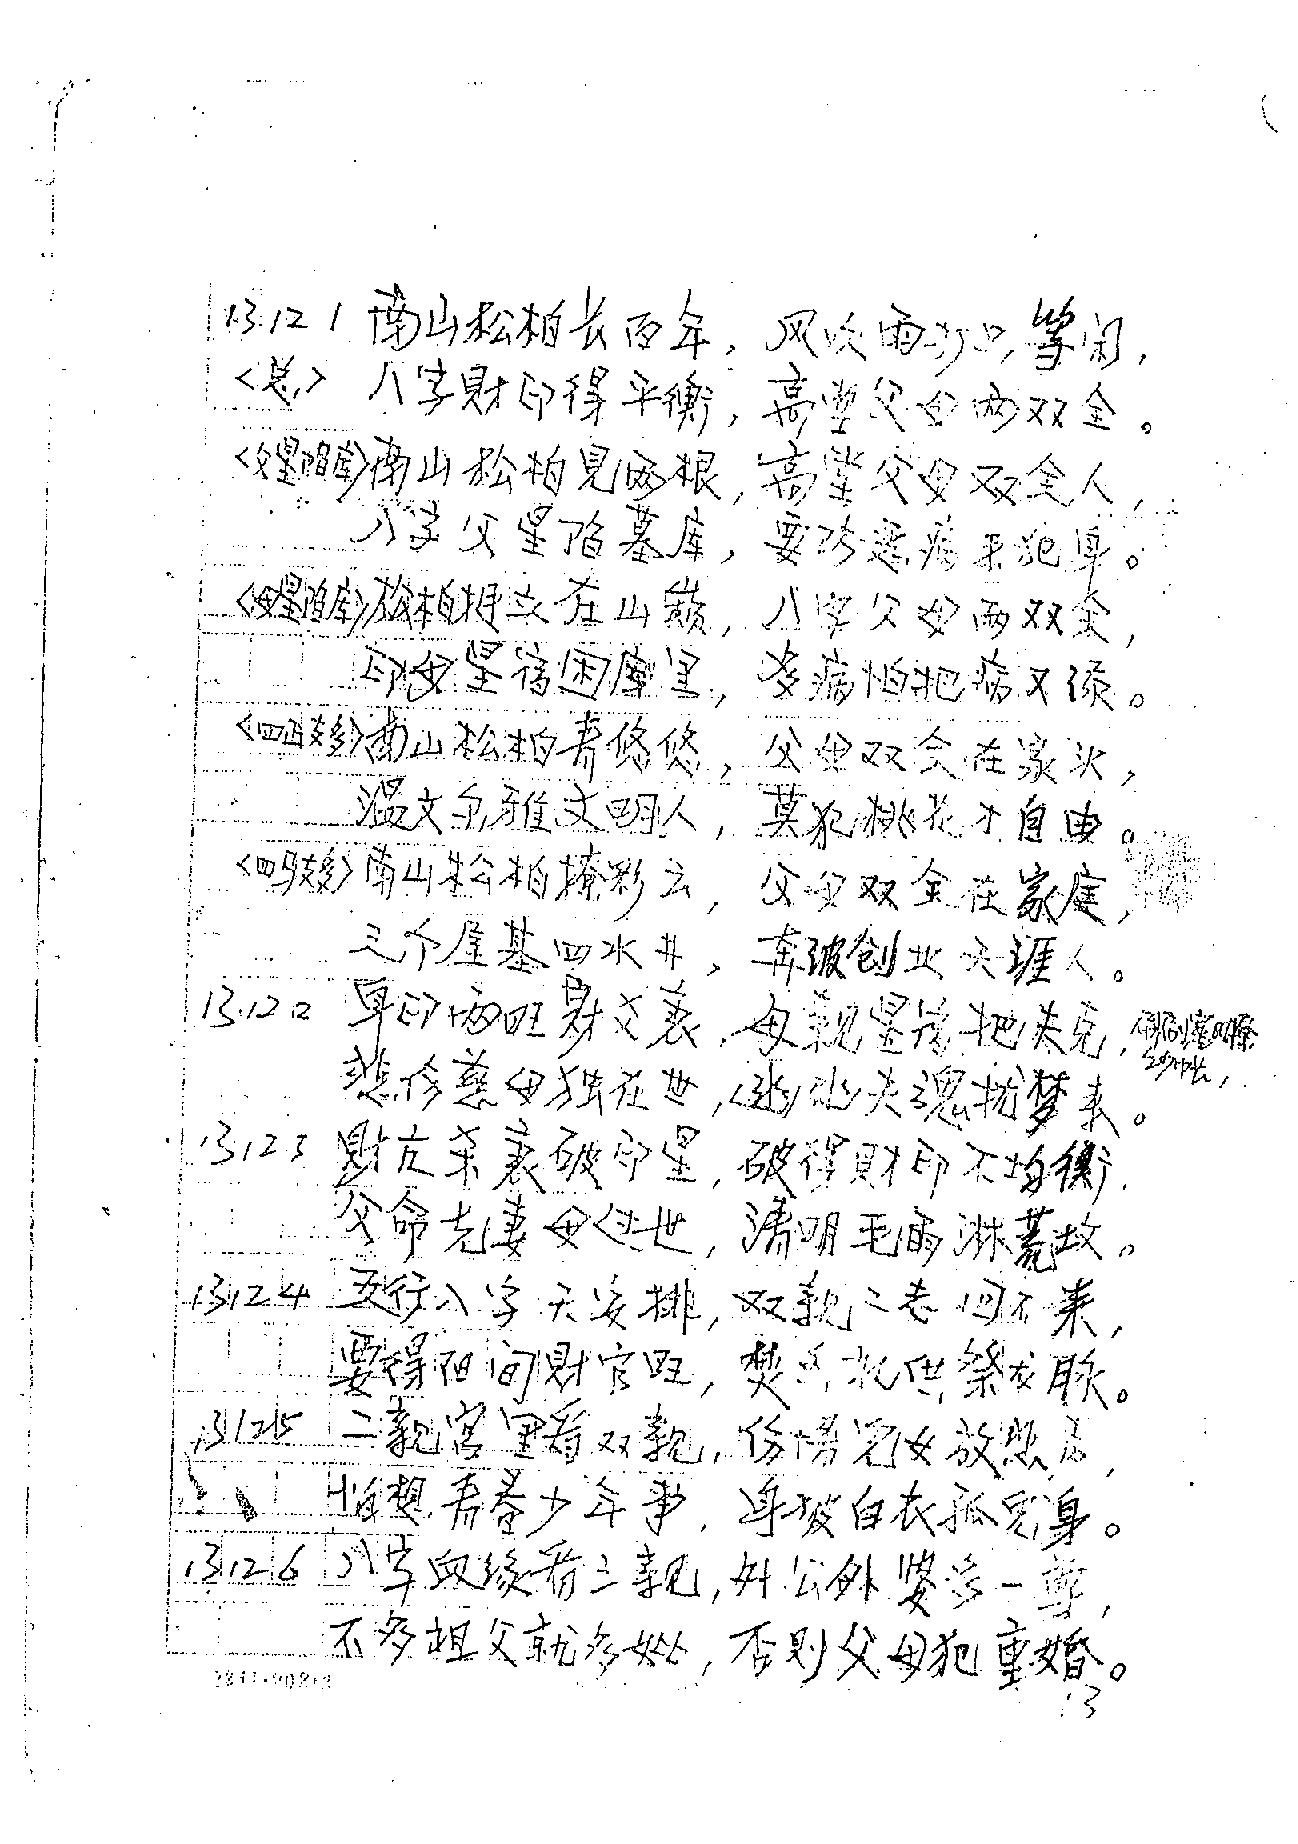 13.12 1 南山松柏长百年, 风吹雨打只等闲,
<总> 八字財印得平衡, 高堂父母两双全。
<父星陷库> 南山松柏見两根, 高堂父母双全人,
八字父星陷墓库, 要防恶病来犯身。
<母星陷库> 松柏挺立在山巅, 八字父母两双全,
印母星宿困库里, 多病怕把病又添。
<四正支多> 南山松柏青悠悠, 父母双全在家头,
温文尔雅文明人, 莫犯桃花才自由。
<四马支多> 南山松柏撩彩云, 父母双全在家庭,
三个屋基四水井, 奔波创业天涯人。
13.12 2 身印两旺財父衰, 母親星宿把夫克,
慈母独在世, 失魂扰梦来。
13.12 3 財亢杀衰破印星, 破得財印不均衡,
父命克妻母去世, 清明毛雨淋荒坟。
13.12 4 五行八字天安排, 双親二老回不来,
要得阳间財官旺, 焚香礼供祭龙脉。
13.12 5 二親宫里看双親, 儿女放悲声,
怕想青春少年事, 身披白衣孤儿身。
13.12 6 八字血缘看三親, 外公外婆多一尊,
不多祖父就多妣, 否则父母犯重婚。
13